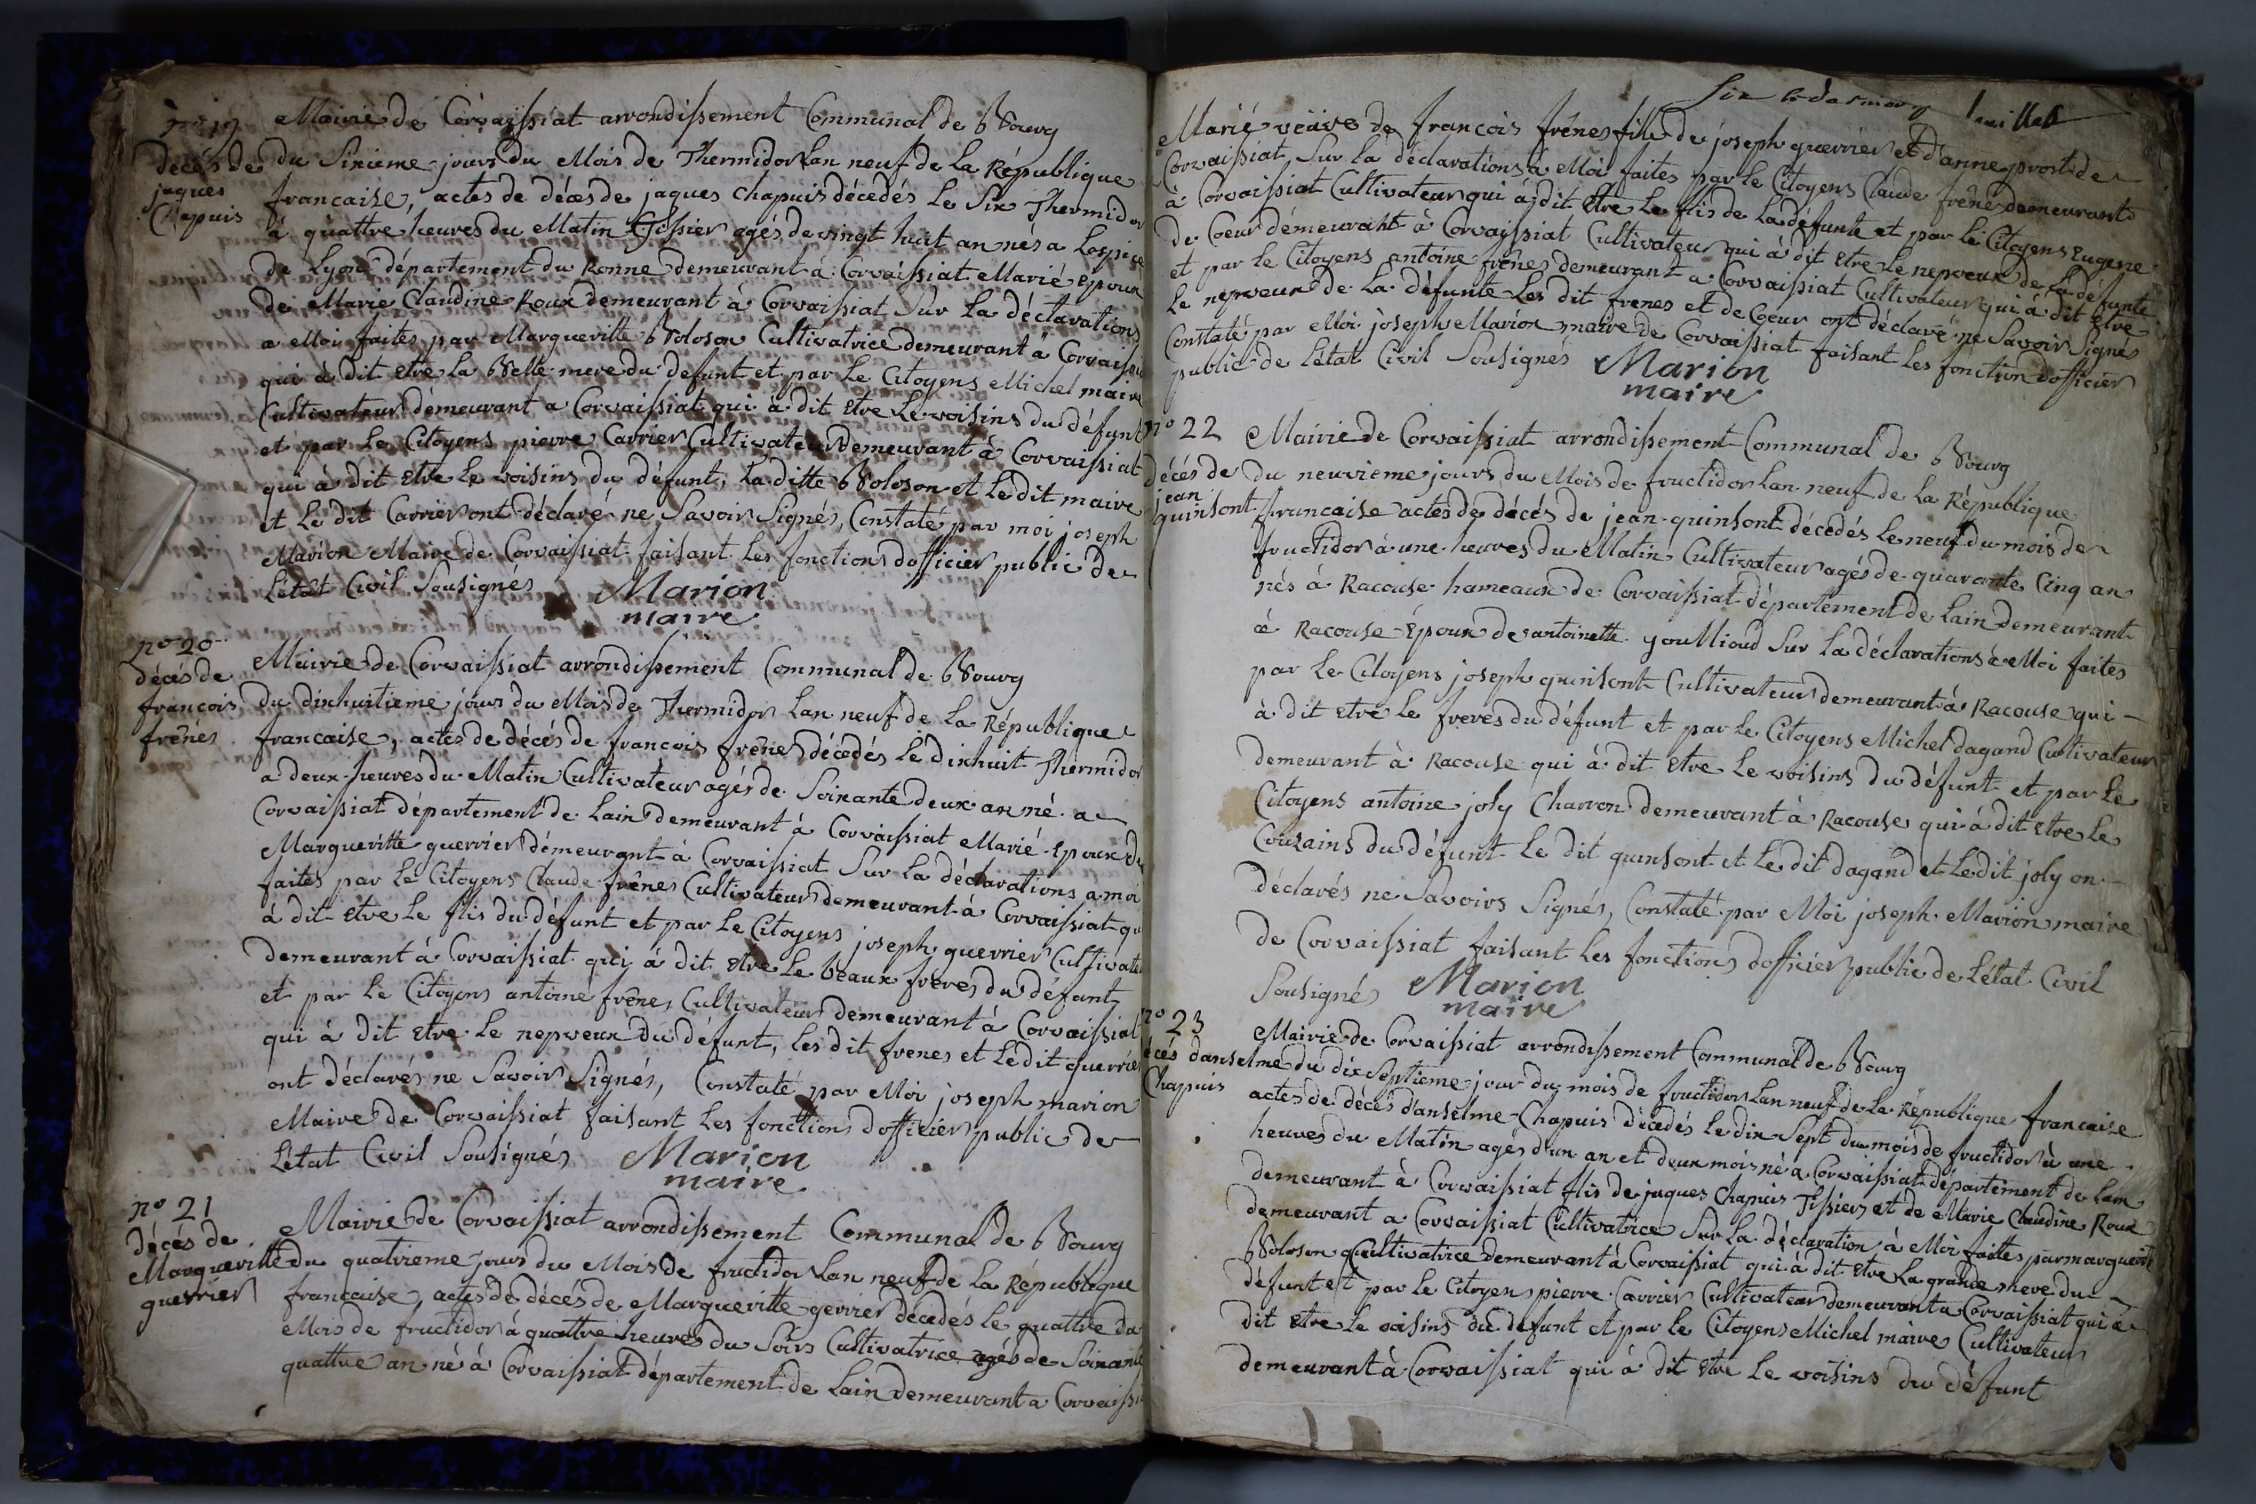 n° 19 Mairie de Corvaissiat arrondissement Communal de bourg
décés de du Sixieme jours du Mois de Thermidor Lan neuf de La République
jaques francaise, actes de décés de jaques Chapuis décedés le Six Thermidor
Chapuis à quattre heures du Matin Tissier agés de vingt huit an nés a Lospice
de Lyon département du Ronne demeurant à Corvaissiat Marié Epoux
de Marie Claudine Roux demeurant à Corvaissiat Sur La déclarations
a Moi faites par Margueritte boloson Cultivatrice demeurant a Corvaissia
qui à dit Etre La belle mere du defunt et par Le Citoyens Michel maire
Cultivateur demeurant a Corvaissiat qui à dit Etre Le voisins du défunt
et par Le Citoyens pierre Carrier Cultivateur demeurant à Corvaissiat
qui à dit Etre Le voisins du défunt, La ditte boloson et Le dit maire
et Le dit Carrier ont déclaré ne Savoir Signés, Constaté par moi joseph
Marion Maire de Corvaissiat faisant Les fonctions dofficier public de
Létat Civil Sousignés Marion
maire
n° 20 Mairie de Corvaissiat arrondissement Communal de bourg
décés de
francois du dixhuitieme jours du Mois de Thermidor Lan neuf de La République
frénes francaise, actes de décés de francois frênes décedés Le dixhuit Thermidor
a deux heures du Matin Cultivateur agés de Soixante deux an né a
Corvaissiat département de Lain demeurant à Corvaissiat Marié Epoux de
Margueritte guerrier démeurant à Corvaissiat Sur La déclarations a moi
faites par Le Citoyens Claude frênes Cultivateur demeurant à Corvaissiat qu
à dit Etre Le flis du défunt et par Le Citoyens joseph guerrier Cultivate
demeurant à Corvaissiat qui à dit Etre Le beaux freres du défunt
et par Le Citoyens antoine frênes Cultivateur demeurant à Corvaissiat
qui à dit Etre Le nepveux du défunt, Les dit frenes et Le dit guerrie
ont déclarés ne Savoir Signés, Constaté par Moi joseph marion
Maire de Corvaissiat faisant Les fonctions dofficier public de
Létat Civil Sousignés Marion
maire
n° 21
décés de Mairie de Corvaissiat arrondissement Communal de bourg
Margueritte du quatrieme jours du Mois de fructidor Lan neuf de La République
guerrier francaise, actes de décés de Margueritte gerrier décedés Le quattre du
Mois de fructidor à quattre heures du Soirs Cultivatrice agés de Soixante
quattre an né à Corvaissiat département de Lain demeurant a Corvaissi
feuillet
Marié veüve de francois frênes fille de joseph guerrier et d'anne prost de
Corvaissiat, Sur La déclarations à Moi faites par Le Citoyens Claude frêne demeurant
à Corvaissiat Cultivateur qui à dit Etre Le flis de La défunte et par Le Citoyens Eugene
de Coeur démeurant à Corvaissiat Cultivateur qui à dit Etre Le nepveux de La défunte
et par Le Citoyens antoine frênes demeurant a Corvaissiat Cultivateur qui à dit Etre
Le nepveux de La défunte Les dit frenes et de Coeur ont déclaré ne Savoir Signés
Constaté par Moi joseph Marion maire de Corvaissiat faisant Les fonction dofficier
public de Létat Civil Sousignés Marion
maire
n° 22 Mairie de Corvaissiat arrondissement Communal de bourg
décés de du neuvieme jours du Mois de fructidor Lan neuf de La République
jean
quinsont francaise actes de décés de jean quinsont décedés Le neuf du mois de
fructidor à une heures du Matin Cultivateur agés de quarante Cinq an
nés à Racouse hameaux de Corvaissiat département de Lain demeurant
à Racouse Epoux de antoinette goullioud Sur La déclarations à Moi faites
par Le Citoyens joseph quinsont Cultivateur demeurant à Racouse qui
à dit Etre Le freres du défunt et par Le Citoyens Michel dagand Cultivateur
demeurant à Racouse qui à dit Etre Le voisins du défunt et par Le
Citoyens antoine joly Charron demeurant à Racouse qui à dit Etre Le
Couzains du défunt Le dit quinsont et Le dit dagand et Le dit joly on
déclarés ne Savoirs Signés, Constaté par Moi joseph Marion maire
de Corvaissiat faisant Les fonctions dofficier public de Létat Civil
Sousignés Marion
maire
n° 23 Mairie de Corvaissiat arrondissement Communal de bourg
écés danselme du dix Septieme jour du mois de fructidor Lan neuf de La République francaise
Chapuis actes de décés d'anselme Chapuis décedés Le dix Sept du mois de fructidor à une
heures du Matin agés d'un an et deux mois né a Corvaissiat département de Lain
demeurant à Corvaissiat flis de jaques Chapuis Tissier et de Marie Claudine Roux
demeurant a Corvaissiat Cultivatrice Sur La déclaration à Moi faites par margueritt
boloson Cultivatrice demeurant à Corvaissiat qui à dit Etre La grande mere du
défunt et par Le Citoyens pierre Carrier Cultivateur demeurant a Corvaissiat qui à
dit Etre Le voisins du defunt et par Le Citoyens Michel maires Cultivateur
demeurant à Corvaissiat qui à dit Etre Le voisins du défunt